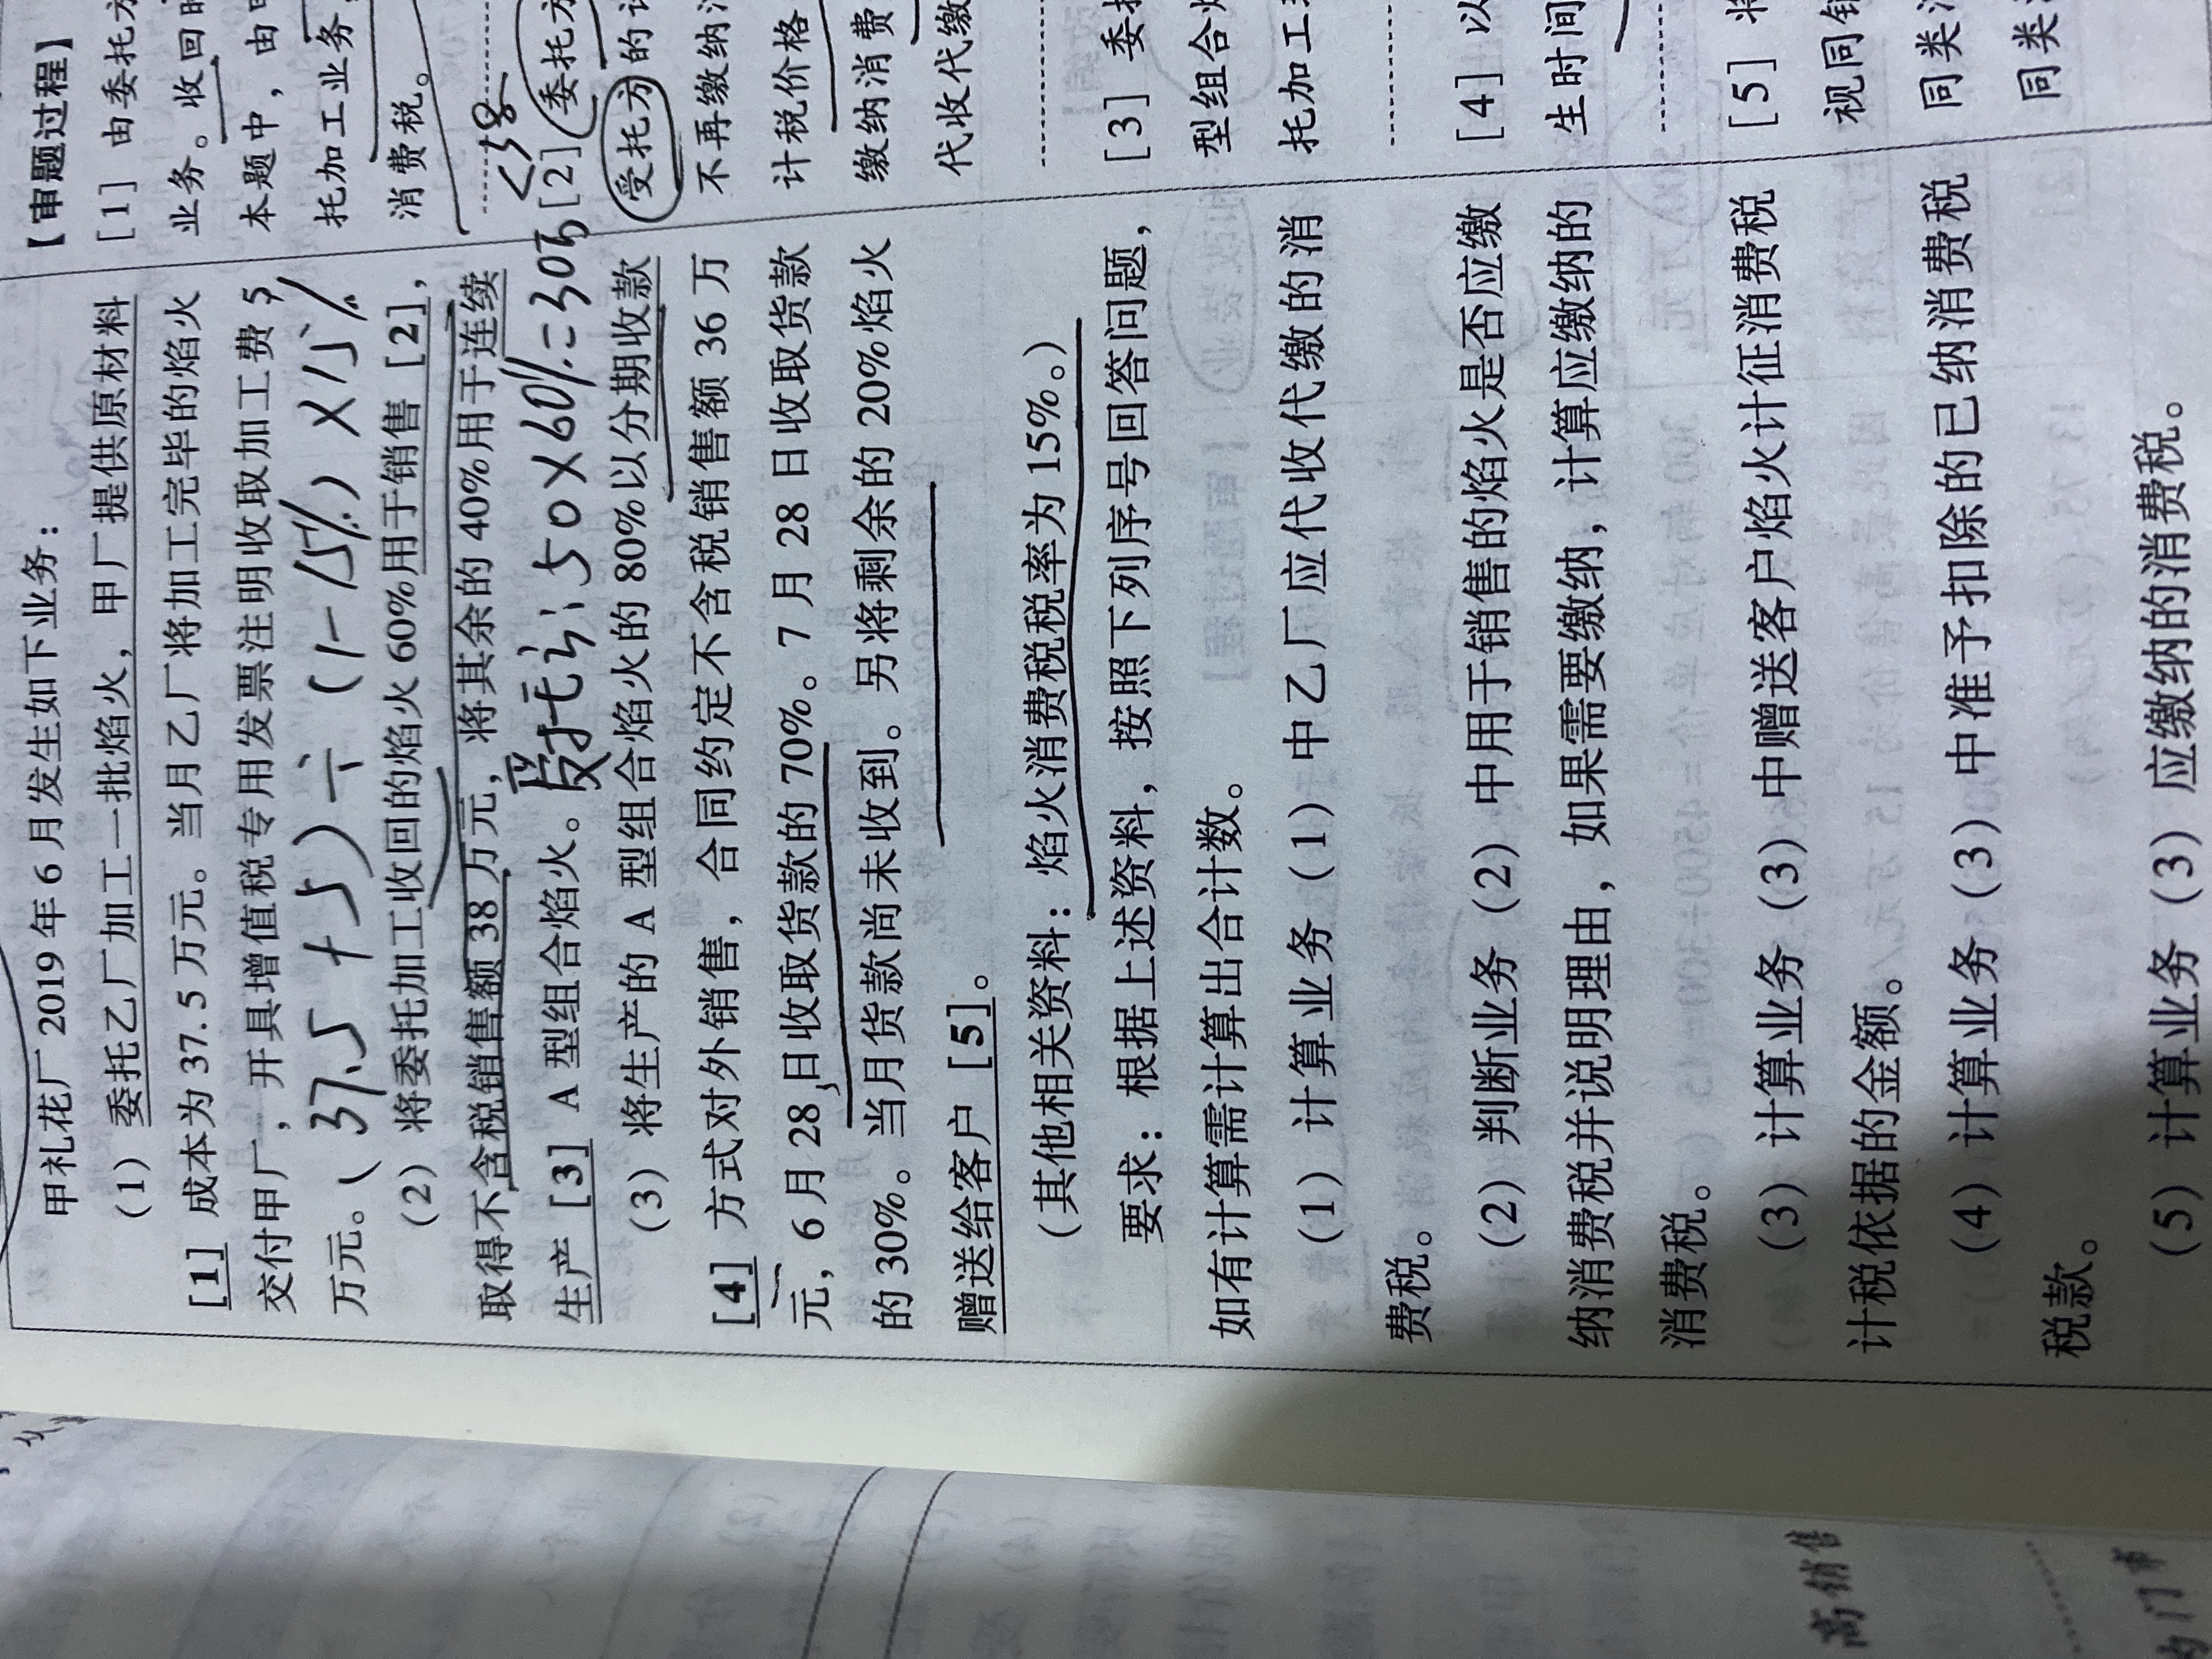 甲礼花厂 2019 年 6 月发生如下业务：
（1）委托乙厂加工一批焰火，甲厂提供原材料
[1] 成本为 37.5 万元。当月乙厂将加工完毕的焰火
交付甲厂，开具增值税专用发票注明收取加工费 5
万元。
(37.5 + 5) ÷ (1-15%) × 15%
（2）将委托加工收回的焰火 60%用于销售 [2]，
取得不含税销售额 38 万元，将其余的 40%用于连续
受托方: 50×60%=30万 <38
生产 [3] A 型组合焰火。
（3）将生产的 A 型组合焰火的 80%以分期收款
[4] 方式对外销售，合同约定不含税销售额 36 万
元，6 月 28 日收取货款的 70%。7 月 28 日收取货款
的 30%。当月货款尚未收到。另将剩余的 20%焰火
赠送给客户 [5]。
（其他相关资料：焰火消费税税率为 15%。）
要求：根据上述资料，按照下列序号回答问题，
如有计算需计算出合计数。
（1）计算业务（1）中乙厂应代收代缴的消
费税。
（2）判断业务（2）中用于销售的焰火是否应缴
纳消费税并说明理由，如果需要缴纳，计算应缴纳的
消费税。
（3）计算业务（3）中赠送客户焰火计征消费税
计税依据的金额。
（4）计算业务（3）中准予扣除的已纳消费税
税款。
（5）计算业务（3）应缴纳的消费税。
【审题过程】
[1] 由委托方
业务。收回
本题中，由
托加工业务
消费税。
[2] 委托方
受托方的
不再缴纳
计税价格
缴纳消费
代收代缴
[3] 委
型组合
托加工
[4] 以
生时间
[5] 将
视同销
同类
同类
高销售